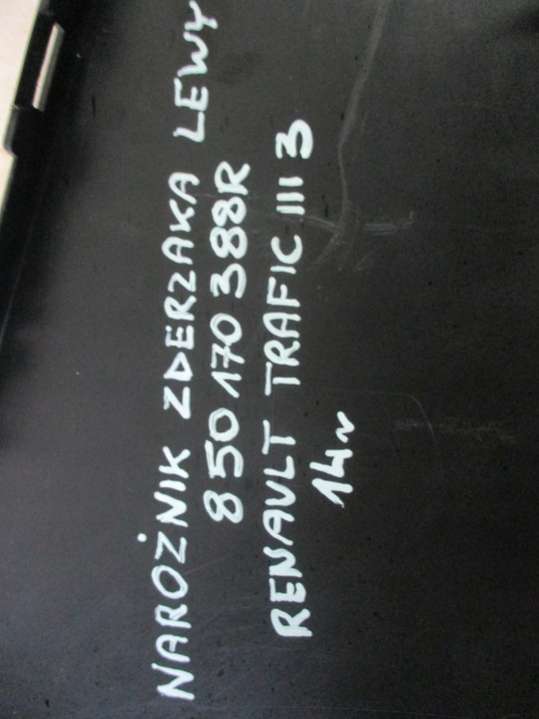 NAROŻNIK ZDERZAKA LEWY
850170388R
RENAULT TRAFIC III 3
14r